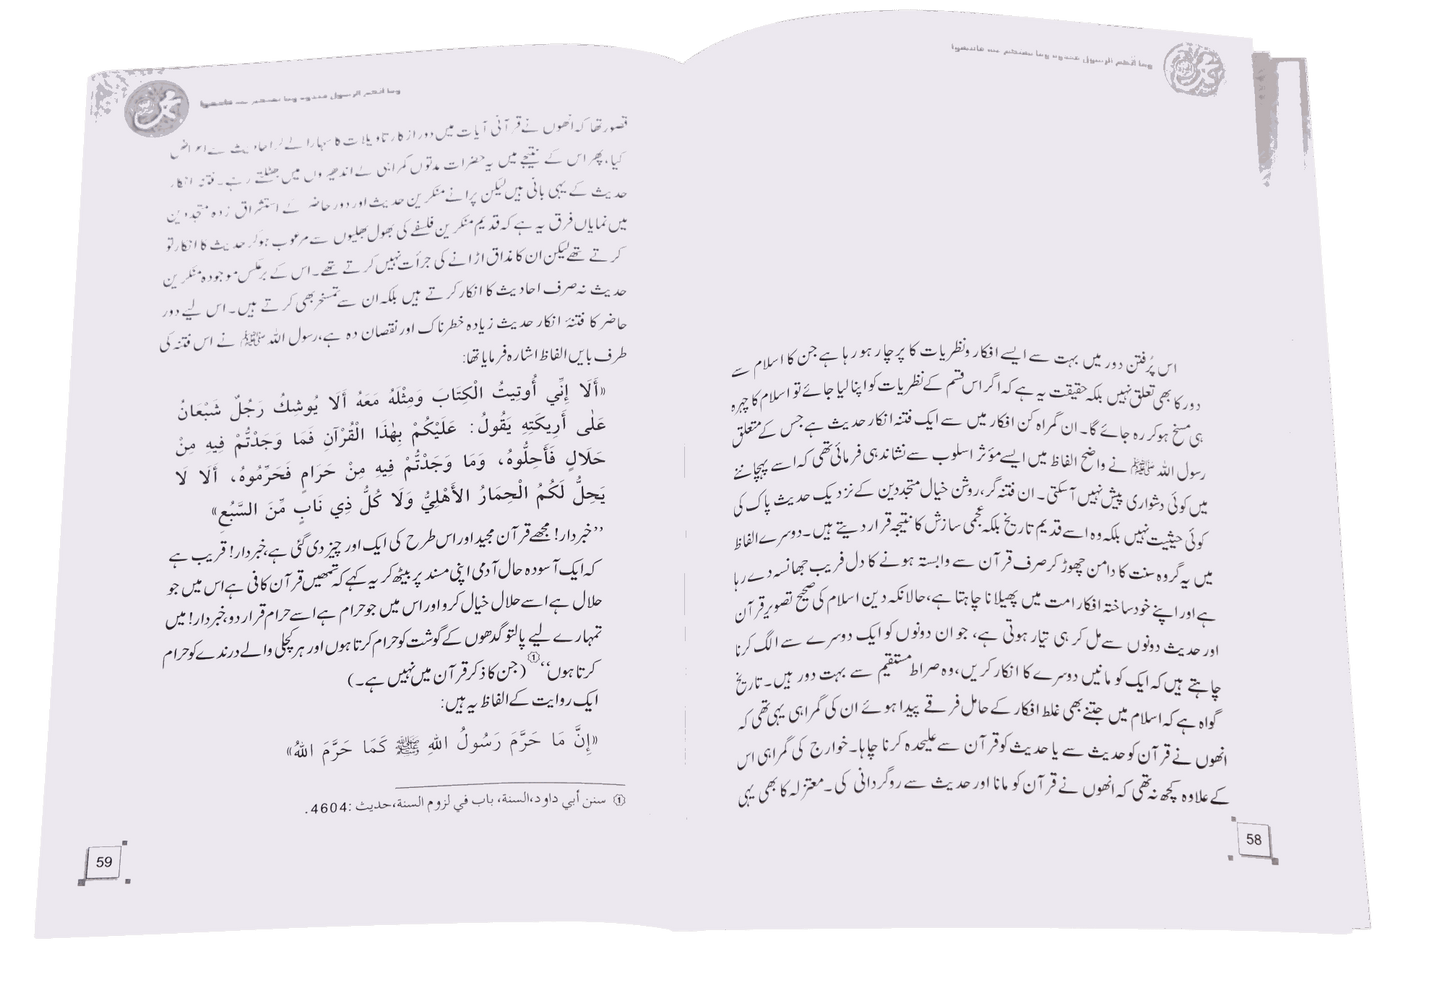 وما آتٰكم الرسول فخذوه وما نهٰكم عنه فانتهوا
اس پُرفتن دور میں بہت سے ایسے افکار ونظریات کا پرچار ہو رہا ہے جن کا اسلام سے
دور کا بھی تعلق نہیں بلکہ حقیقت یہ ہے کہ اگر اس قسم کے نظریات کو اپنا لیا جائے تو اسلام کا چہرہ
ہی مسخ ہو کر رہ جائے گا۔ ان گمراہ کن افکار میں سے ایک فتنہ انکار حدیث ہے جس کے متعلق
رسول اللہ ﷺ نے واضح الفاظ میں ایسے مؤثر اسلوب سے نشاندہی فرمائی تھی کہ اسے پہچاننے
میں کوئی دشواری پیش نہیں آسکتی۔ ان فتنہ گر، روشن خیال متجددین کے نزدیک حدیث پاک کی
کوئی حیثیت نہیں بلکہ وہ اسے قدیم تاریخ بلکہ عجمی سازش کا نتیجہ قرار دیتے ہیں۔ دوسرے الفاظ
میں یہ گروہ سنت کا دامن چھوڑ کر صرف قرآن سے وابستہ ہونے کا دل فریب جھانسہ دے رہا
ہے اور اپنے خود ساختہ افکار امت میں پھیلانا چاہتا ہے، حالانکہ دین اسلام کی صحیح تصویر قرآن
اور حدیث دونوں سے مل کر ہی تیار ہوتی ہے، جو ان دونوں کو ایک دوسرے سے الگ کرنا
چاہتے ہیں کہ ایک کو مانیں دوسرے کا انکار کریں، وہ صراط مستقیم سے بہت دور ہیں۔ تاریخ
گواہ ہے کہ اسلام میں جتنے بھی غلط افکار کے حامل فرقے پیدا ہوئے ان کی گمراہی یہی تھی کہ
انھوں نے قرآن کو حدیث سے یا حدیث کو قرآن سے علیحدہ کرنا چاہا۔ خوارج کی گمراہی اس
کے علاوہ کچھ نہ تھی کہ انھوں نے قرآن کو مانا اور حدیث سے روگردانی کی۔ معتزلہ کا بھی یہی
58
وما آتٰكم الرسول فخذوه وما نهٰكم عنه فانتهوا
قصور تھا کہ انھوں نے قرآنی آیات میں دور از کار تاویلات کا سہارا لے کر احادیث سے اعراض
کیا، پھر اس کے نتیجے میں یہ حضرات مدتوں گمراہی کے اندھیروں میں بھٹکتے رہے۔ فتنہ انکار
حدیث کے یہی بانی ہیں لیکن پرانے منکرین حدیث اور دور حاضر کے استشراق زدہ متجددین
میں نمایاں فرق یہ ہے کہ قدیم منکرین فلسفے کی بھول بھلیوں سے مرعوب ہو کر حدیث کا انکار تو
کرتے تھے لیکن ان کا مذاق اڑانے کی جرأت نہیں کرتے تھے۔ اس کے برعکس موجودہ منکرین
حدیث نہ صرف احادیث کا انکار کرتے ہیں بلکہ ان سے تمسخر بھی کرتے ہیں۔ اس لیے دور
حاضر کا فتنۂ انکار حدیث زیادہ خطرناک اور نقصان دہ ہے، رسول اللہ ﷺ نے اس فتنہ کی
طرف بایں الفاظ اشارہ فرمایا تھا:
«أَلَا إِنِّي أُوتِيتُ الْكِتَابَ وَمِثْلَهُ مَعَهُ أَلَا يُوشِكُ رَجُلٌ شَبْعَانُ
عَلٰى أَرِيكَتِهِ يَقُولُ: عَلَيْكُمْ بِهٰذَا الْقُرْآنِ فَمَا وَجَدْتُّمْ فِيهِ مِنْ
حَلَالٍ فَأَحِلُّوهُ، وَمَا وَجَدْتُّمْ فِيهِ مِنْ حَرَامٍ فَحَرِّمُوهُ، أَلَا لَا
يَحِلُّ لَكُمُ الْحِمَارُ الأَهْلِيُّ وَلَا كُلُّ ذِي نَابٍ مِّنَ السَّبُعِ»
’’خبردار! مجھے قرآن مجید اور اس طرح کی ایک اور چیز دی گئی ہے، خبردار! قریب ہے
کہ ایک آسودہ حال آدمی اپنی مسند پر بیٹھ کر یہ کہے کہ تمھیں قرآن کافی ہے اس میں جو
حلال ہے اسے حلال خیال کرو اور اس میں جو حرام ہے اسے حرام قرار دو، خبردار! میں
تمہارے لیے پالتو گدھوں کے گوشت کو حرام کرتا ہوں اور ہر کچلی والے درندے کو حرام
کرتا ہوں‘‘① (جن کا ذکر قرآن میں نہیں ہے۔)
ایک روایت کے الفاظ یہ ہیں:
«إِنَّ مَا حَرَّمَ رَسُولُ اللهِ ﷺ كَمَا حَرَّمَ اللهُ»
① سنن أبي داود، السنة، باب في لزوم السنة، حديث: 4604.
59